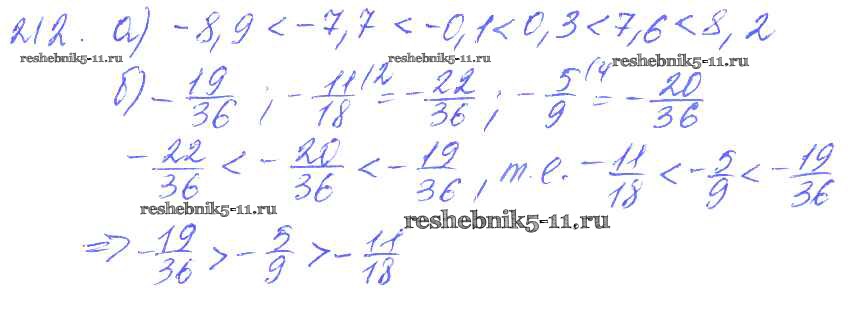 212. а) -8,9 < -7,7 < -0,1 < 0,3 < 7,6 < 8,2
reshebnik5-11.ru reshebnik5-11.ru reshebnik5-11.ru
б) -19/36; -11/18 (2 = -22/36; -5/9 (4 = -20/36
-22/36 < -20/36 < -19/36, т.е. -11/18 < -5/9 < -19/36
reshebnik5-11.ru reshebnik5-11.ru
=> -19/36 > -5/9 > -11/18